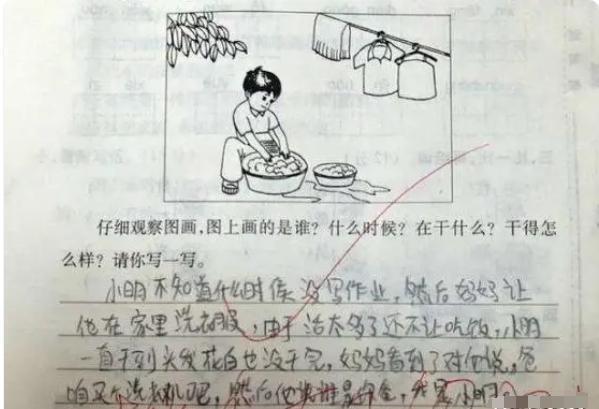 仔细观察图画,图上画的是谁?什么时候?在干什么?干得怎
么样?请你写一写。
小明不知道什么时候没写作业,然后妈妈让
他在家里洗衣服,由于活太多了还不让吃饭,小明
一直干到头发花白也没干完,妈妈看到了对他说,爸
咱买个洗衣机吧,然后他说谁是你爸,我是小明